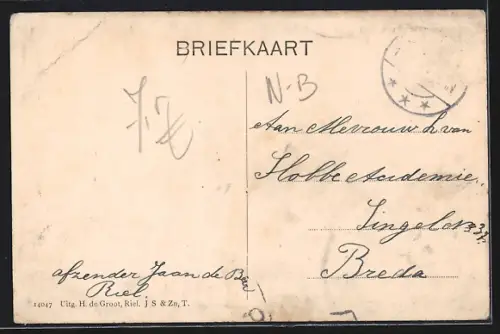 BRIEFKAART
N-B
Aan Mevrouw h van
Hobbe Academie
Singel
Breda
afzender Jaan de
Riel.
14047 Uitg. H. de Groot, Riel. J S & Zn, T.